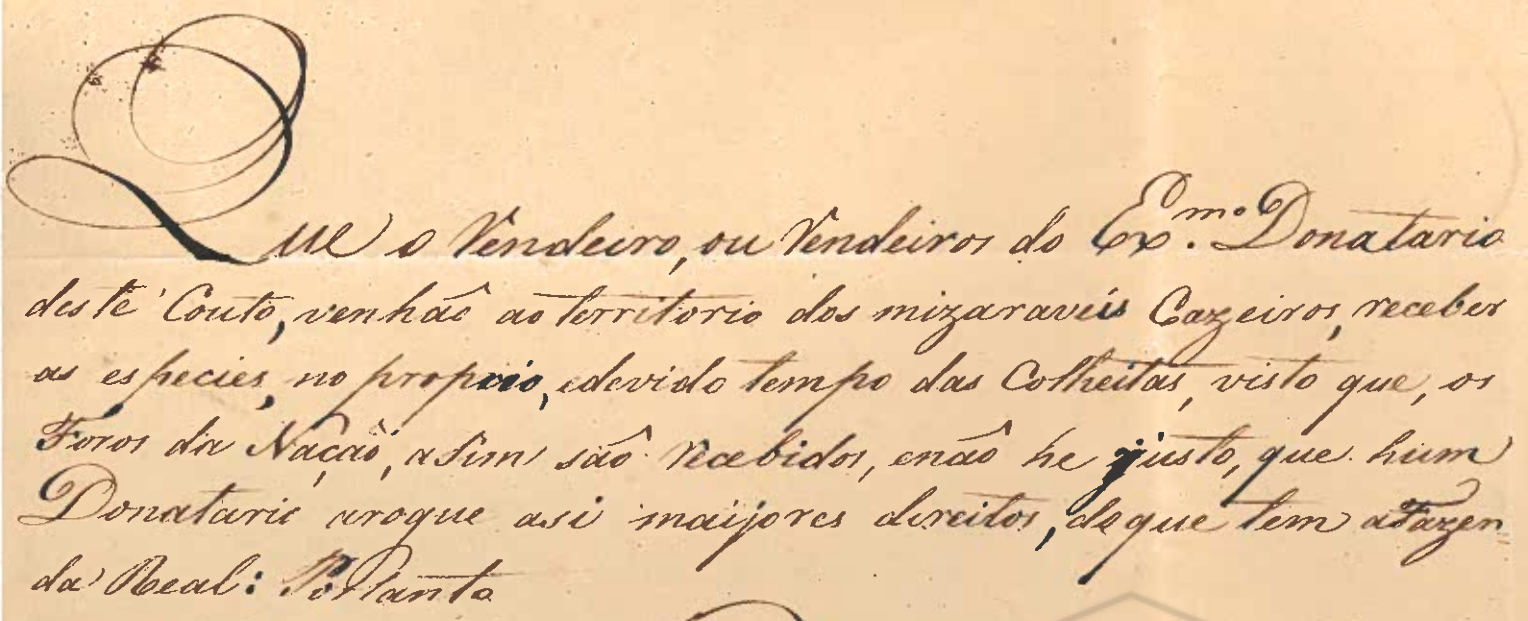 Que o Rendeiro, ou Rendeiros do Ex.mo Donatario
deste Couto, venhão ao territorio dos mizaraveis Cazeiros, receber
as especies, no proprio, edevido tempo das Colheitas, visto que, os
Foros da Nação, asim são recebidos, enão he justo, que hum
Donatario arogue asi maijores direitos, doque tem aFazen
da Real: Portanto